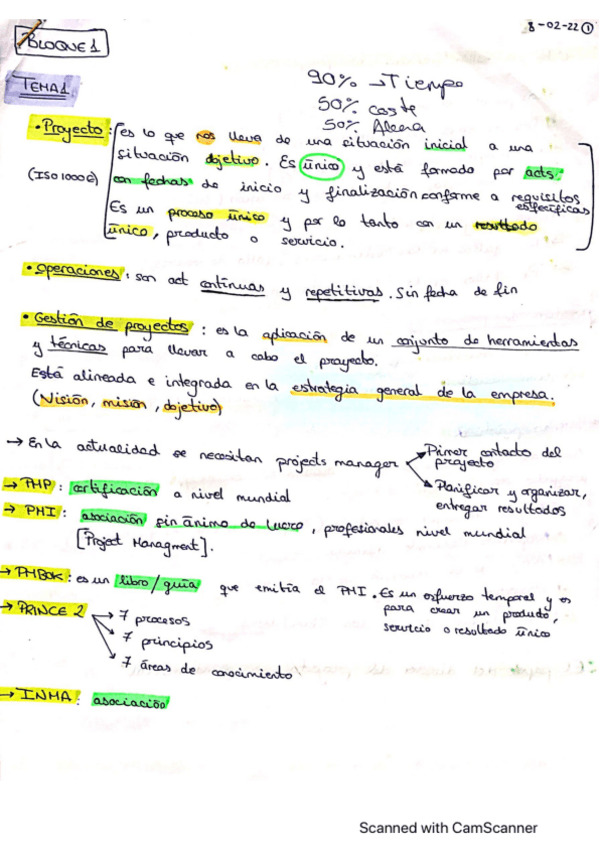 8-02-22 ①
BLOQUE 1
TEMA 1
90% → Tiempo
50% coste
50% Alcna
• Proyecto: es lo que nos lleva de una situación inicial a una
situación objetivo. Es único y está formado por acts.
(ISO 10006) con fechas de inicio y finalización conforme a requisitos
específicas
Es un proceso único y por lo tanto con un resultado
único, producto o servicio.
• Operaciones: son act continuas y repetitivas. Sin fecha de fin
• Gestión de proyectos: es la aplicación de un conjunto de herramientas
y técnicas para llevar a cabo el proyecto.
Está alineada e integrada en la estrategia general de la empresa.
(Visión, misión, objetivo)
→ En la actualidad se necesitan projects manager
→ Primer contacto del
proyecto
→ Planificar y organizar,
entregar resultados
→ PMP: certificación a nivel mundial
→ PMI: asociación sin ánimo de lucro, profesionales nivel mundial
[Project Managment].
→ PMBOK: es un libro/guía que emitía el PMI. Es un esfuerzo temporal y es
para crear un producto,
servicio o resultado único
→ PRINCE 2
→ 7 procesos
→ 7 principios
→ 7 áreas de conocimiento
→ INMA: asociación
Scanned with CamScanner